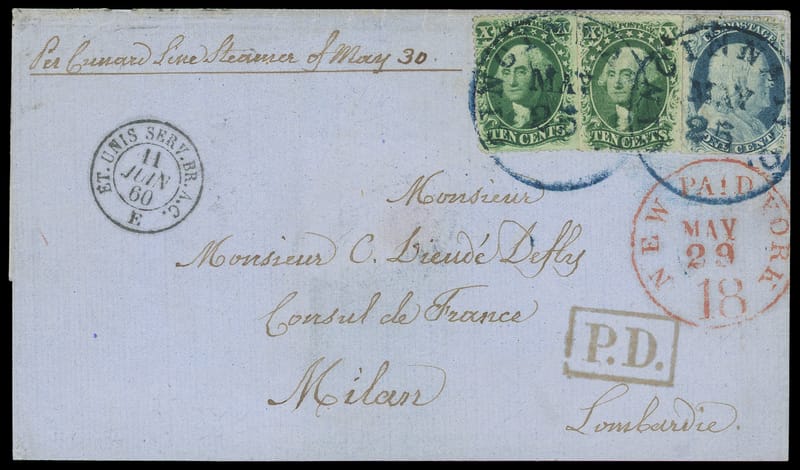 Per Cunard Line Steamer of May 30.
X X
U.S. POSTAGE
TEN CENTS
X X
U.S. POSTAGE
TEN CENTS
U.S. POSTAGE
ONE CENT
CINCINNATI
MAY
25
ET. UNIS SERV. BR. A.C.
11
JUIN
60
E
NEW PAID YORK
MAY
29
18
Monsieur
Monsieur C. Dieudé Defly
Consul de France
Milan
Lombardie.
P.D.